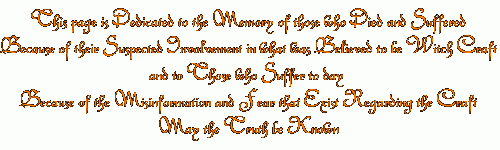 This page is Dedicated to the Memory of those who Died and Suffered
Because of their Suspected Involvement in what was Believed to be Witch Craft
and to Those who Suffer to day
Because of the Misinformation and Fear that Exist Regarding the Craft
May the Truth be Known